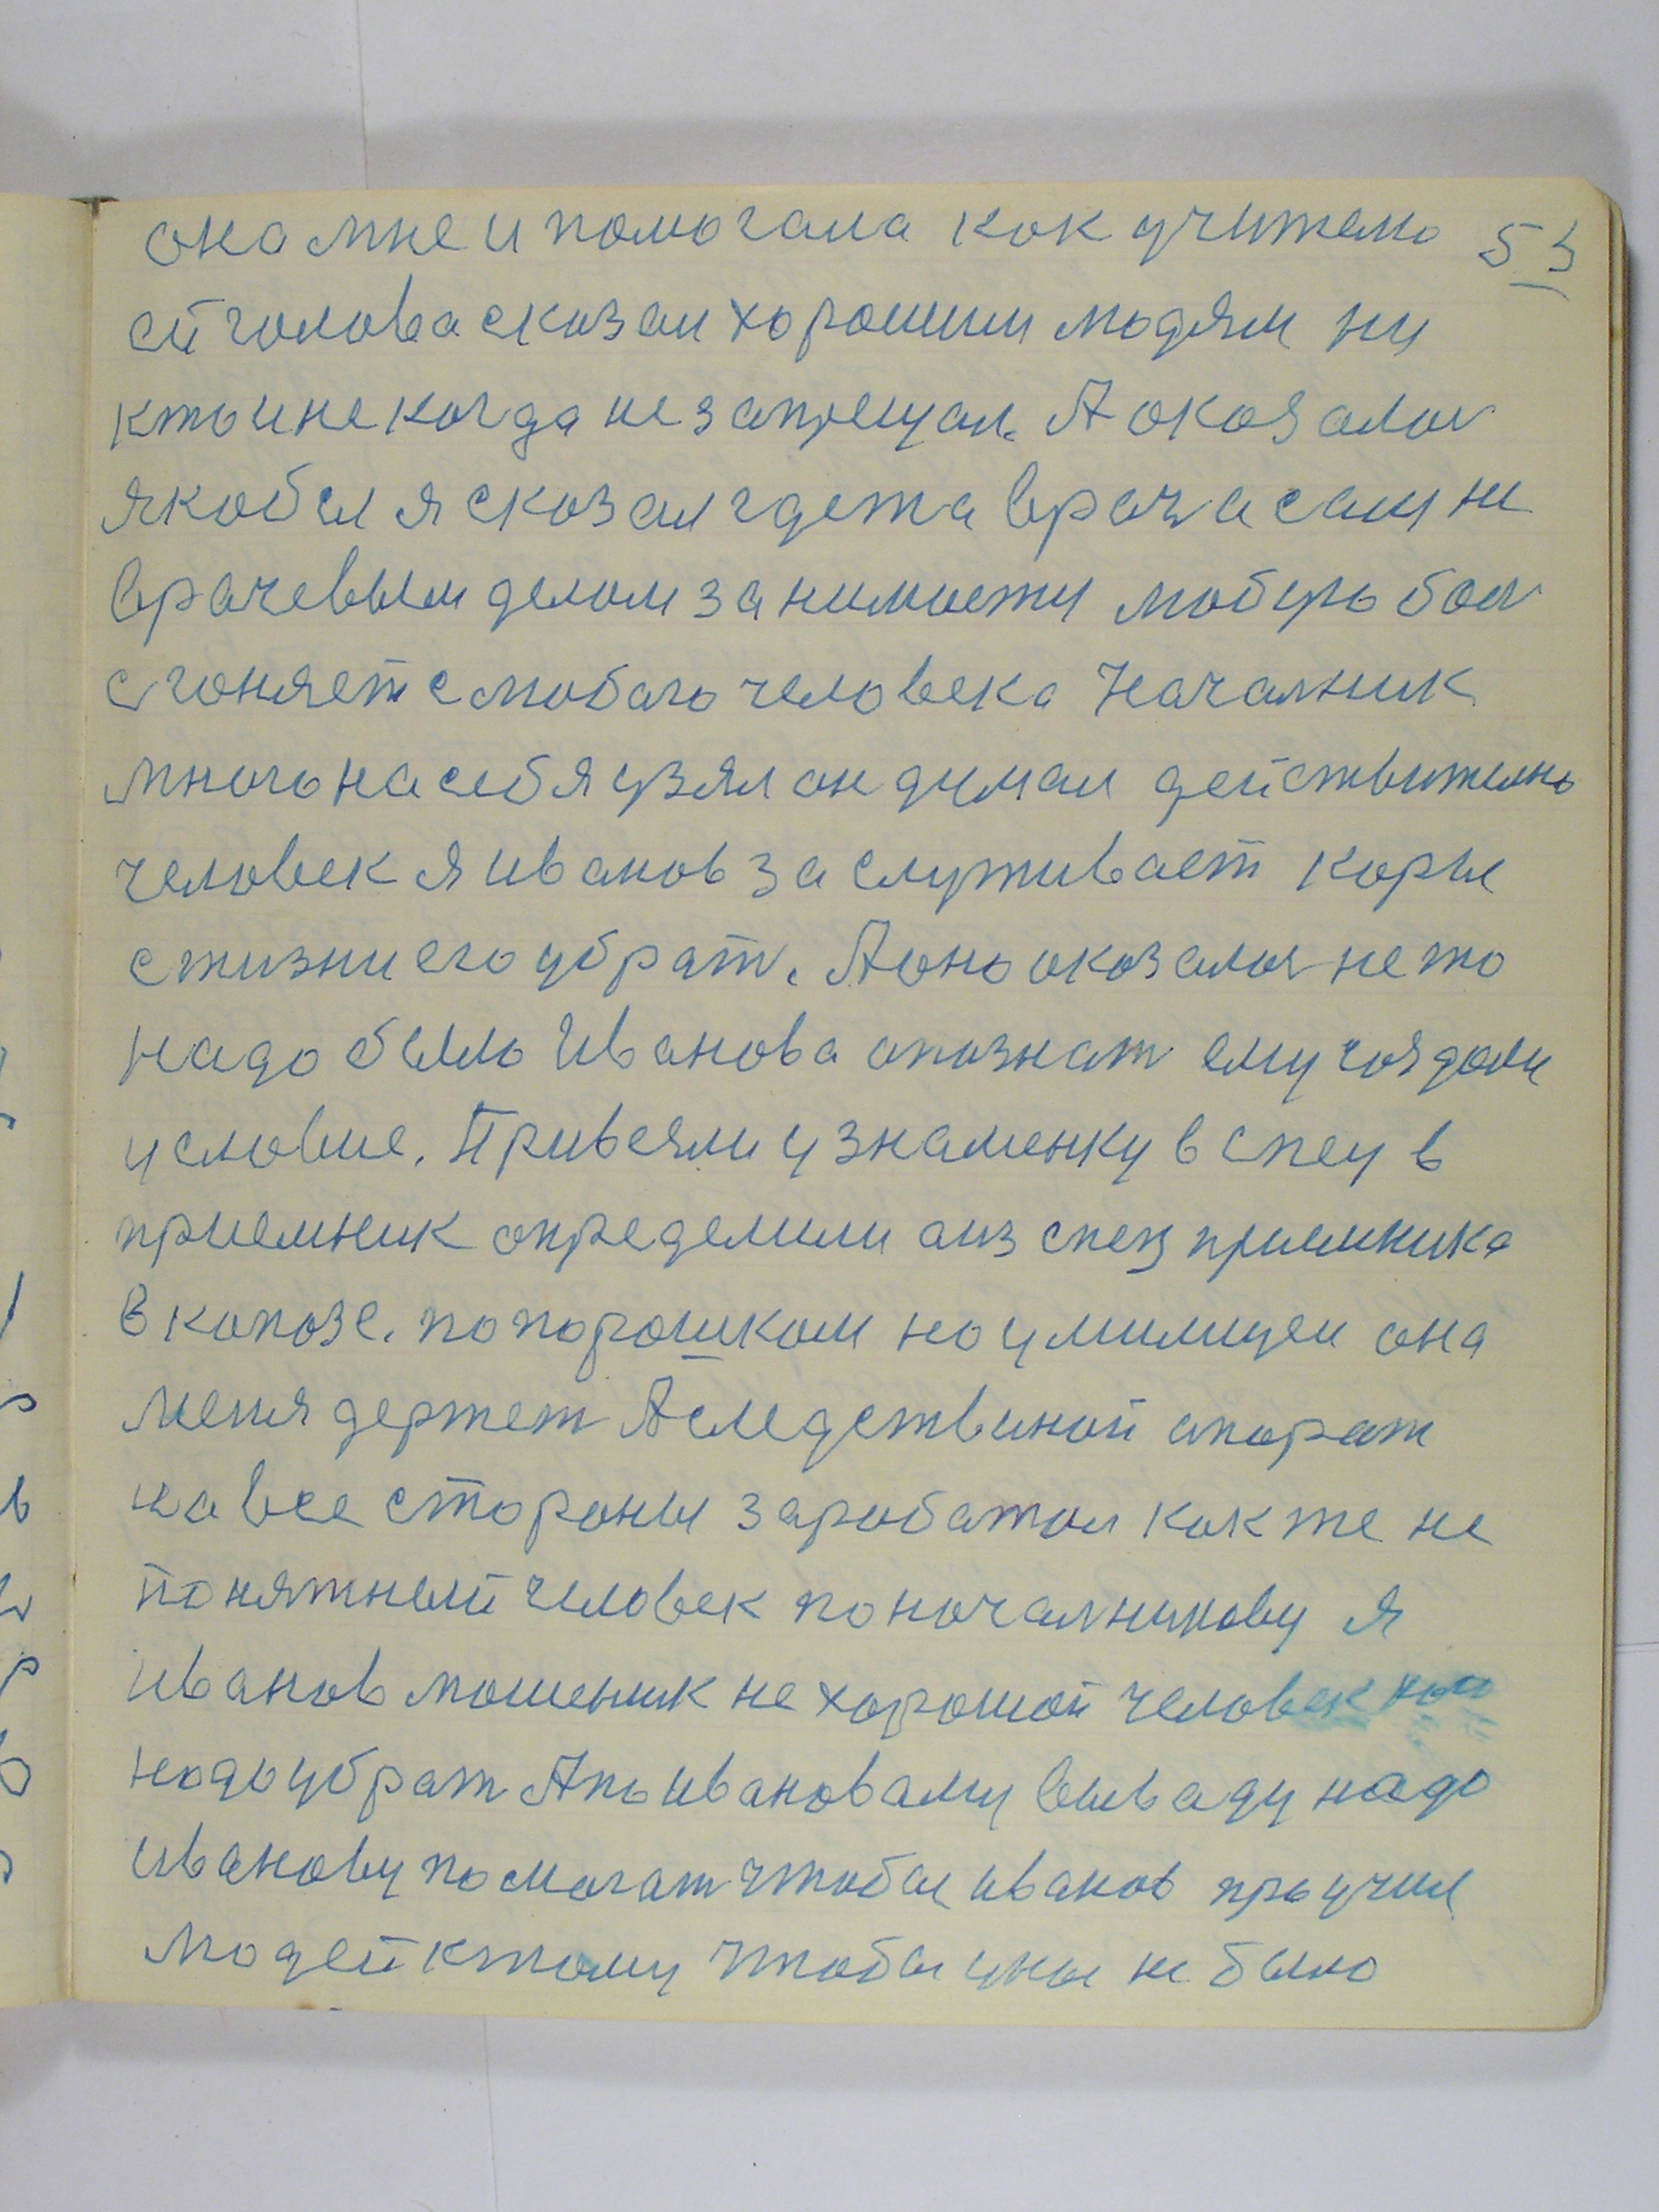 она мне и помогала как учителю 53
ей голова сказал хорошим людям ни
кто и не когда не запрещал. А оказалось
якобы я сказал где та врач а сам не
врачевым делом занимается любую боль
сгоняет с любого человека Началник
много на себя узял он думал действително
человек я иванов заслуживает кары
с жизни его убрать. А оно оказалось не то
надо было Иванова опознать ему создать
условие. Привезли у знаменку в спец в
приемник определили а из спец приемника
в капозе. по порошкам но у милицеи она
меня держет А следственой апорат
на все стороны заработал как же не
понятный человек по началникову я
иванов мошеник не хороший человек
надо убрать А по ивановаму вываду надо
иванову помогать чтобы иванов проучил
людей к тому чтобы у ны не было